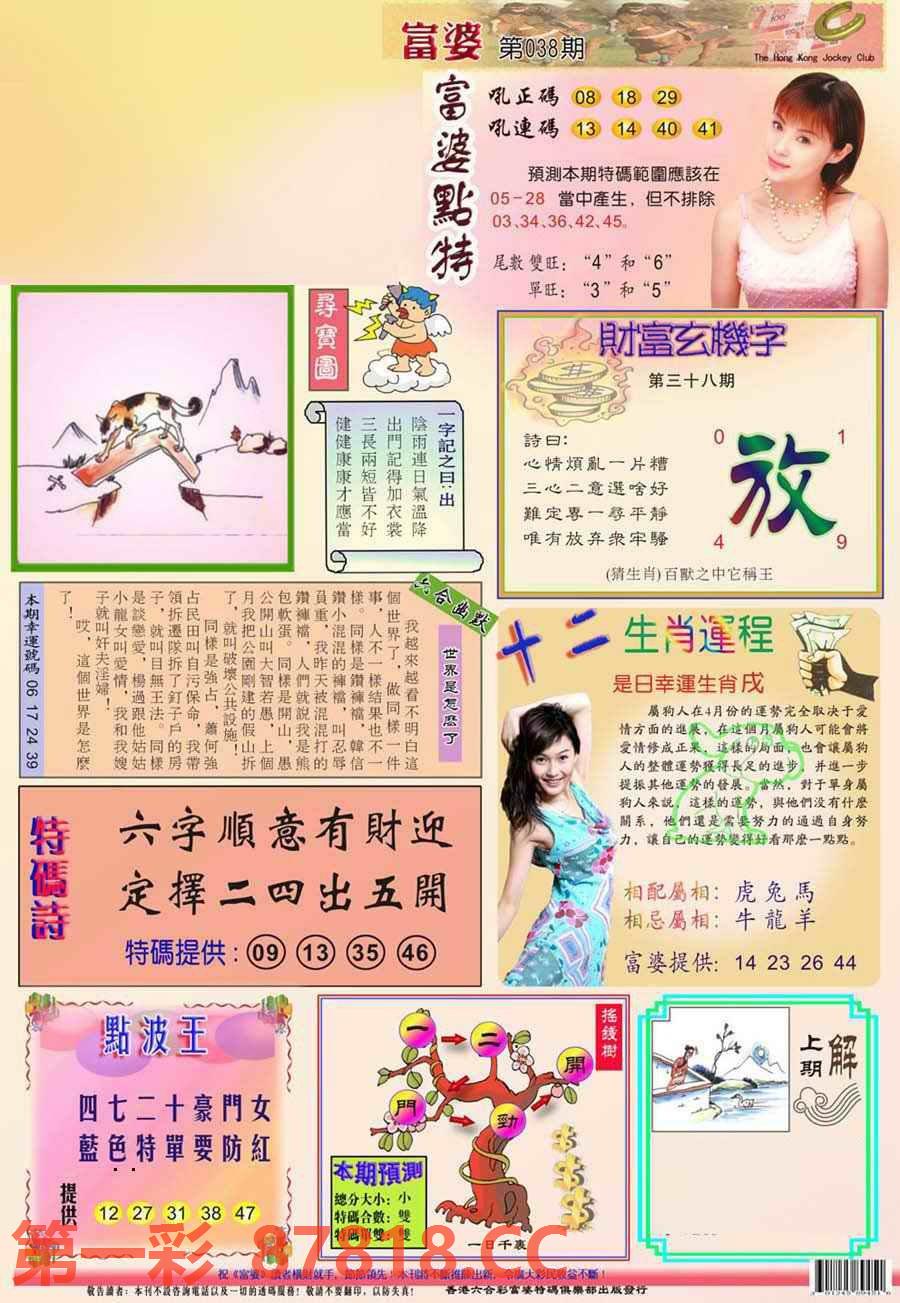 富婆 第038期
The Hong Kong Jockey Club
富婆點特
吼正碼 08 18 29
吼連碼 13 14 40 41
預測本期特碼範圍應該在
05-28 當中產生，但不排除
03、34、36、42、45。
尾數雙旺：“4”和“6”
單旺：“3”和“5”
尋寶圖
一字記之曰：出
陰雨連日氣溫降
出門記得加衣裳
三長兩短皆不好
健健康康才應當
財富玄機字
第三十八期
詩曰：
心情煩亂一片糟
三心二意選啥好
難定專一尋平靜
唯有放弃衆牢騷
0 1
放
4 9
(猜生肖)百獸之中它稱王
六合幽默
世界是怎麽了
我越來越看不明白這
個世界了，做同樣一件
事，人不一樣結果也不一
樣。同樣是鑽褲襠，韓信
鑽小混混的褲襠，叫忍辱
負重，我昨天被混混打的
鑽褲襠，人們就說我是熊
包軟蛋。同樣是開山，愚
公開山叫大智若愚，上個
月我把公園剛建的假山拆
了，就叫破壞公共設施！
同樣是強占，蕭何強
占民田叫自污保命，我帶
領拆遷隊拆了釘子户的房
子，就叫目無王法。同樣
是談戀愛，楊過跟他姑姑
小龍女叫愛情，我和我嫂
子就叫奸夫淫婦！
哎，這個世界是怎麽
了！
本期幸運號碼 06 17 24 39
十二生肖運程
是日幸運生肖戌
屬狗人在4月份的運勢完全取决于愛
情方面的進展，在這個月屬狗人可能會將
愛情修成正果，這樣的局面，也會讓屬狗
人的整體運勢獲得長足的進步，并進一步
提振其他運勢的發展。當然，對于單身屬
狗人來説，這樣的運勢，與他們没有什麽
關系，他們還是需要努力的通過自身努
力，讓自己的運勢變得好看那麽一點點。
相配屬相：虎兔馬
相忌屬相：牛龍羊
富婆提供：14 23 26 44
特碼詩
六字順意有財迎
定擇二四出五開
特碼提供：09 13 35 46
點波王
四七二十豪門女
藍色特單要防紅
提供 12 27 31 38 47
搖錢樹
一 二 開
門 勁
本期預測
總分大小：小
特碼合數：雙
特碼單雙：雙
一日千裏
上期解
第一彩 87818.CC
祝《富婆》讀者橫財就手，節節領先！本刊將不斷推陳出新，令廣大彩民收益不斷！
敬告讀者：本刊不設咨詢電話以及一切的透碼服務！敬請不要翻印，以防失真！ 香港六合彩富婆特碼俱樂部出版發行